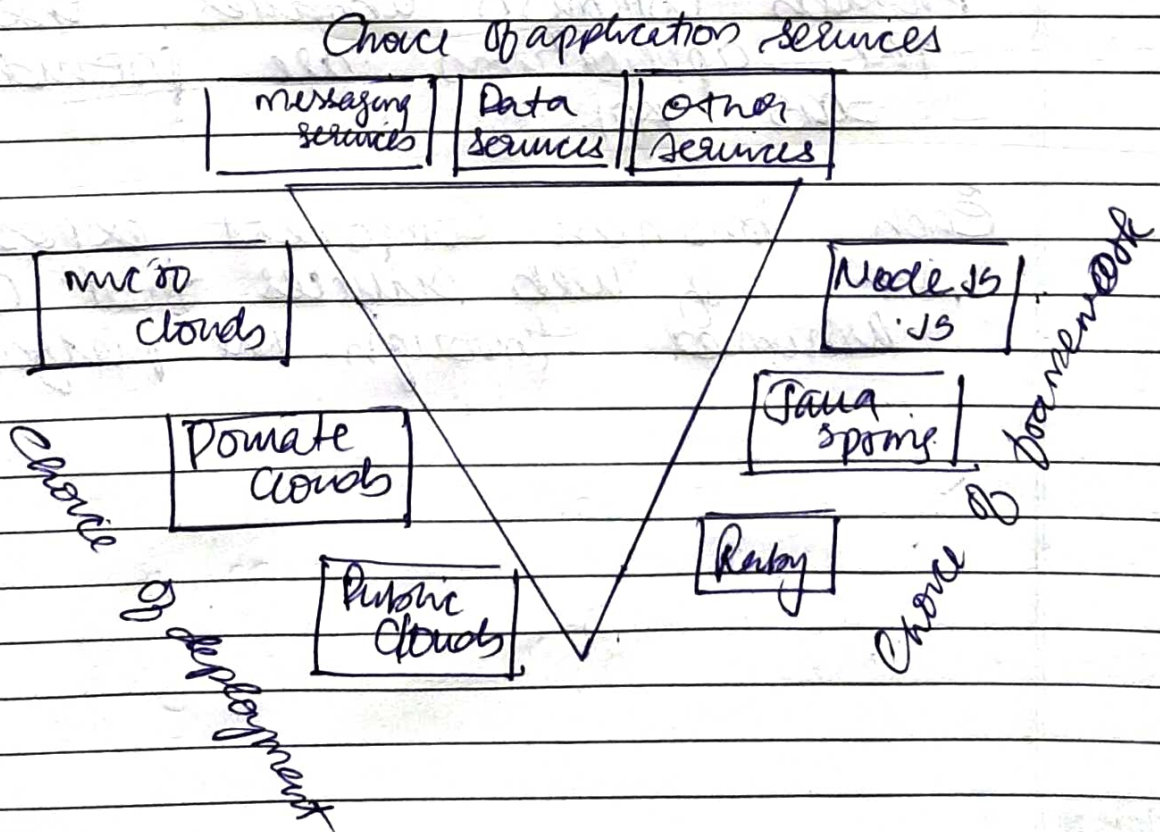 Choice of application services
messaging services
Data services
Other services
micro clouds
Private clouds
Public clouds
Choice of deployment
Node JS
.JS
Java spring
Ruby
Choice of framework